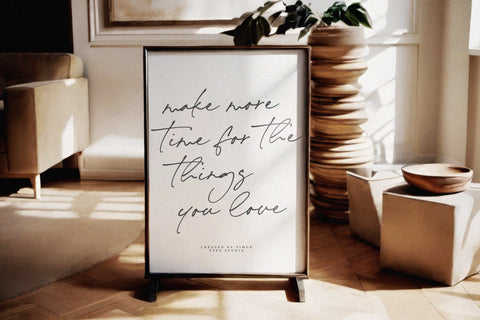 make more
Time for The
Things
you love
CREATED BY TIMUR
TYPE STUDIO